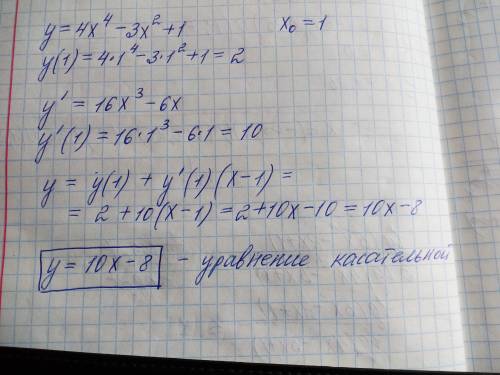 y = 4x⁴ - 3x² + 1 x₀ = 1
y(1) = 4·1⁴ - 3·1² + 1 = 2
y' = 16x³ - 6x
y'(1) = 16·1³ - 6·1 = 10
y = y(1) + y'(1)(x-1) =
= 2 + 10(x-1) = 2+10x-10 = 10x-8
y = 10x - 8 - уравнение касательной